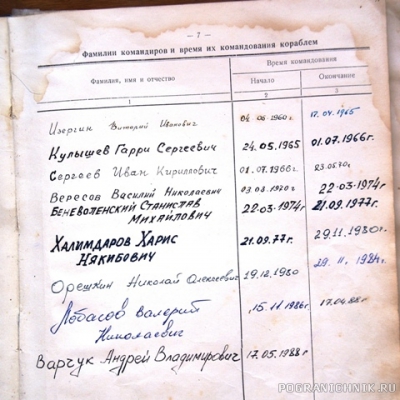 — 7 —
Фамилии командиров и время их командования кораблем
Фамилия, имя и отчество
Время командования
Начало Окончание
1 2 3
Изергин Виталий Иванович 04 06 1960г. 17.04.1965
Кулышев Гарри Сергеевич 24.05.1965 01.07.1966г.
Сергеев Иван Кириллович 01.07.1966г 23.05.70г.
Вересов Василий Николаевич 03.03.1970г 22.03.1974г
Беневоленский Станислав 22.03.1974г. 21.09.1977г.
Михайлович
Халимдаров Харис 21.09.77г. 29.11.1980г.
Някибович
Орешкин Николай Алексеевич 19.12.1980 29.11.1984г.
Лобасов Валерий 15.11.1986г. 17.04.88г.
Николаевич
Варчук Андрей Владимирович 17.05.1988г
POGRANICHNIK.RU